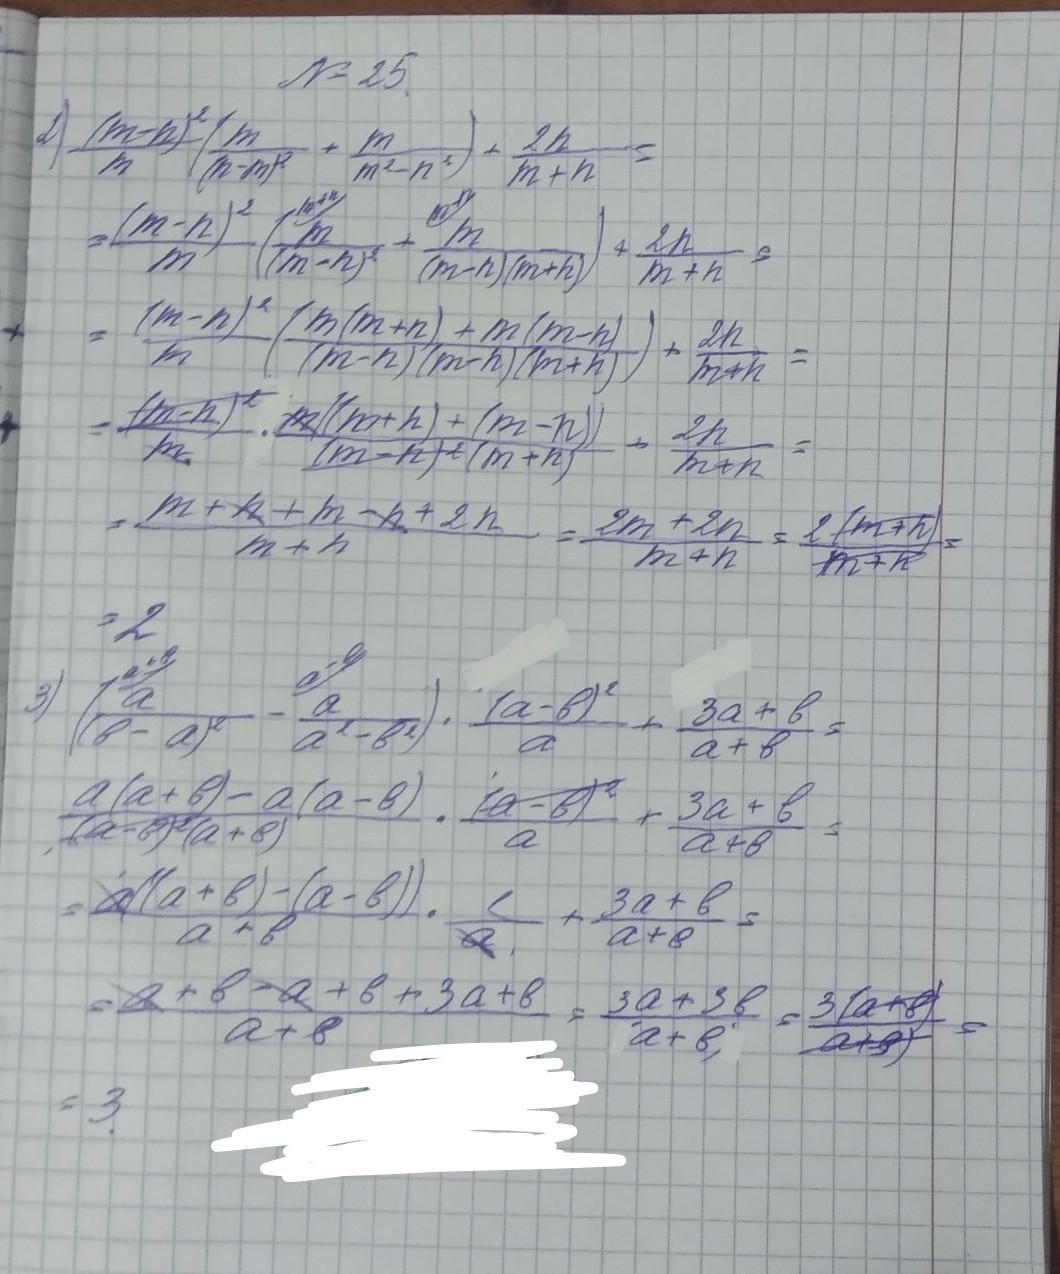 № 25.
2) (m-n)²/m (m/(n-m)² + m/(m²-n²)) + 2n/(m+n) =
= (m-n)²/m (m^(m+n)/(m-n)² + m^(m-n)/((m-n)(m+n))) + 2n/(m+n) =
= (m-n)²/m ((m(m+n)+m(m-n))/((m-n)(m-n)(m+n))) + 2n/(m+n) =
= (m-n)²/m · m((m+n)+(m-n))/((m-n)²(m+n)) + 2n/(m+n) =
= (m+n+m-n+2n)/(m+n) = (2m+2n)/(m+n) = 2(m+n)/(m+n) =
= 2
3) (a^(a+в)/(в-a)² - a^(a-в)/(a²-в²)) · (a-в)²/a + (3a+в)/(a+в) =
(a(a+в)-a(a-в))/((a-в)²(a+в)) · (a-в)²/a + (3a+в)/(a+в) =
= a((a+в)-(a-в))/(a+в) · 1/a + (3a+в)/(a+в) =
= (a+в-a+в+3a+в)/(a+в) = (3a+3в)/(a+в) = 3(a+в)/(a+в) =
= 3.